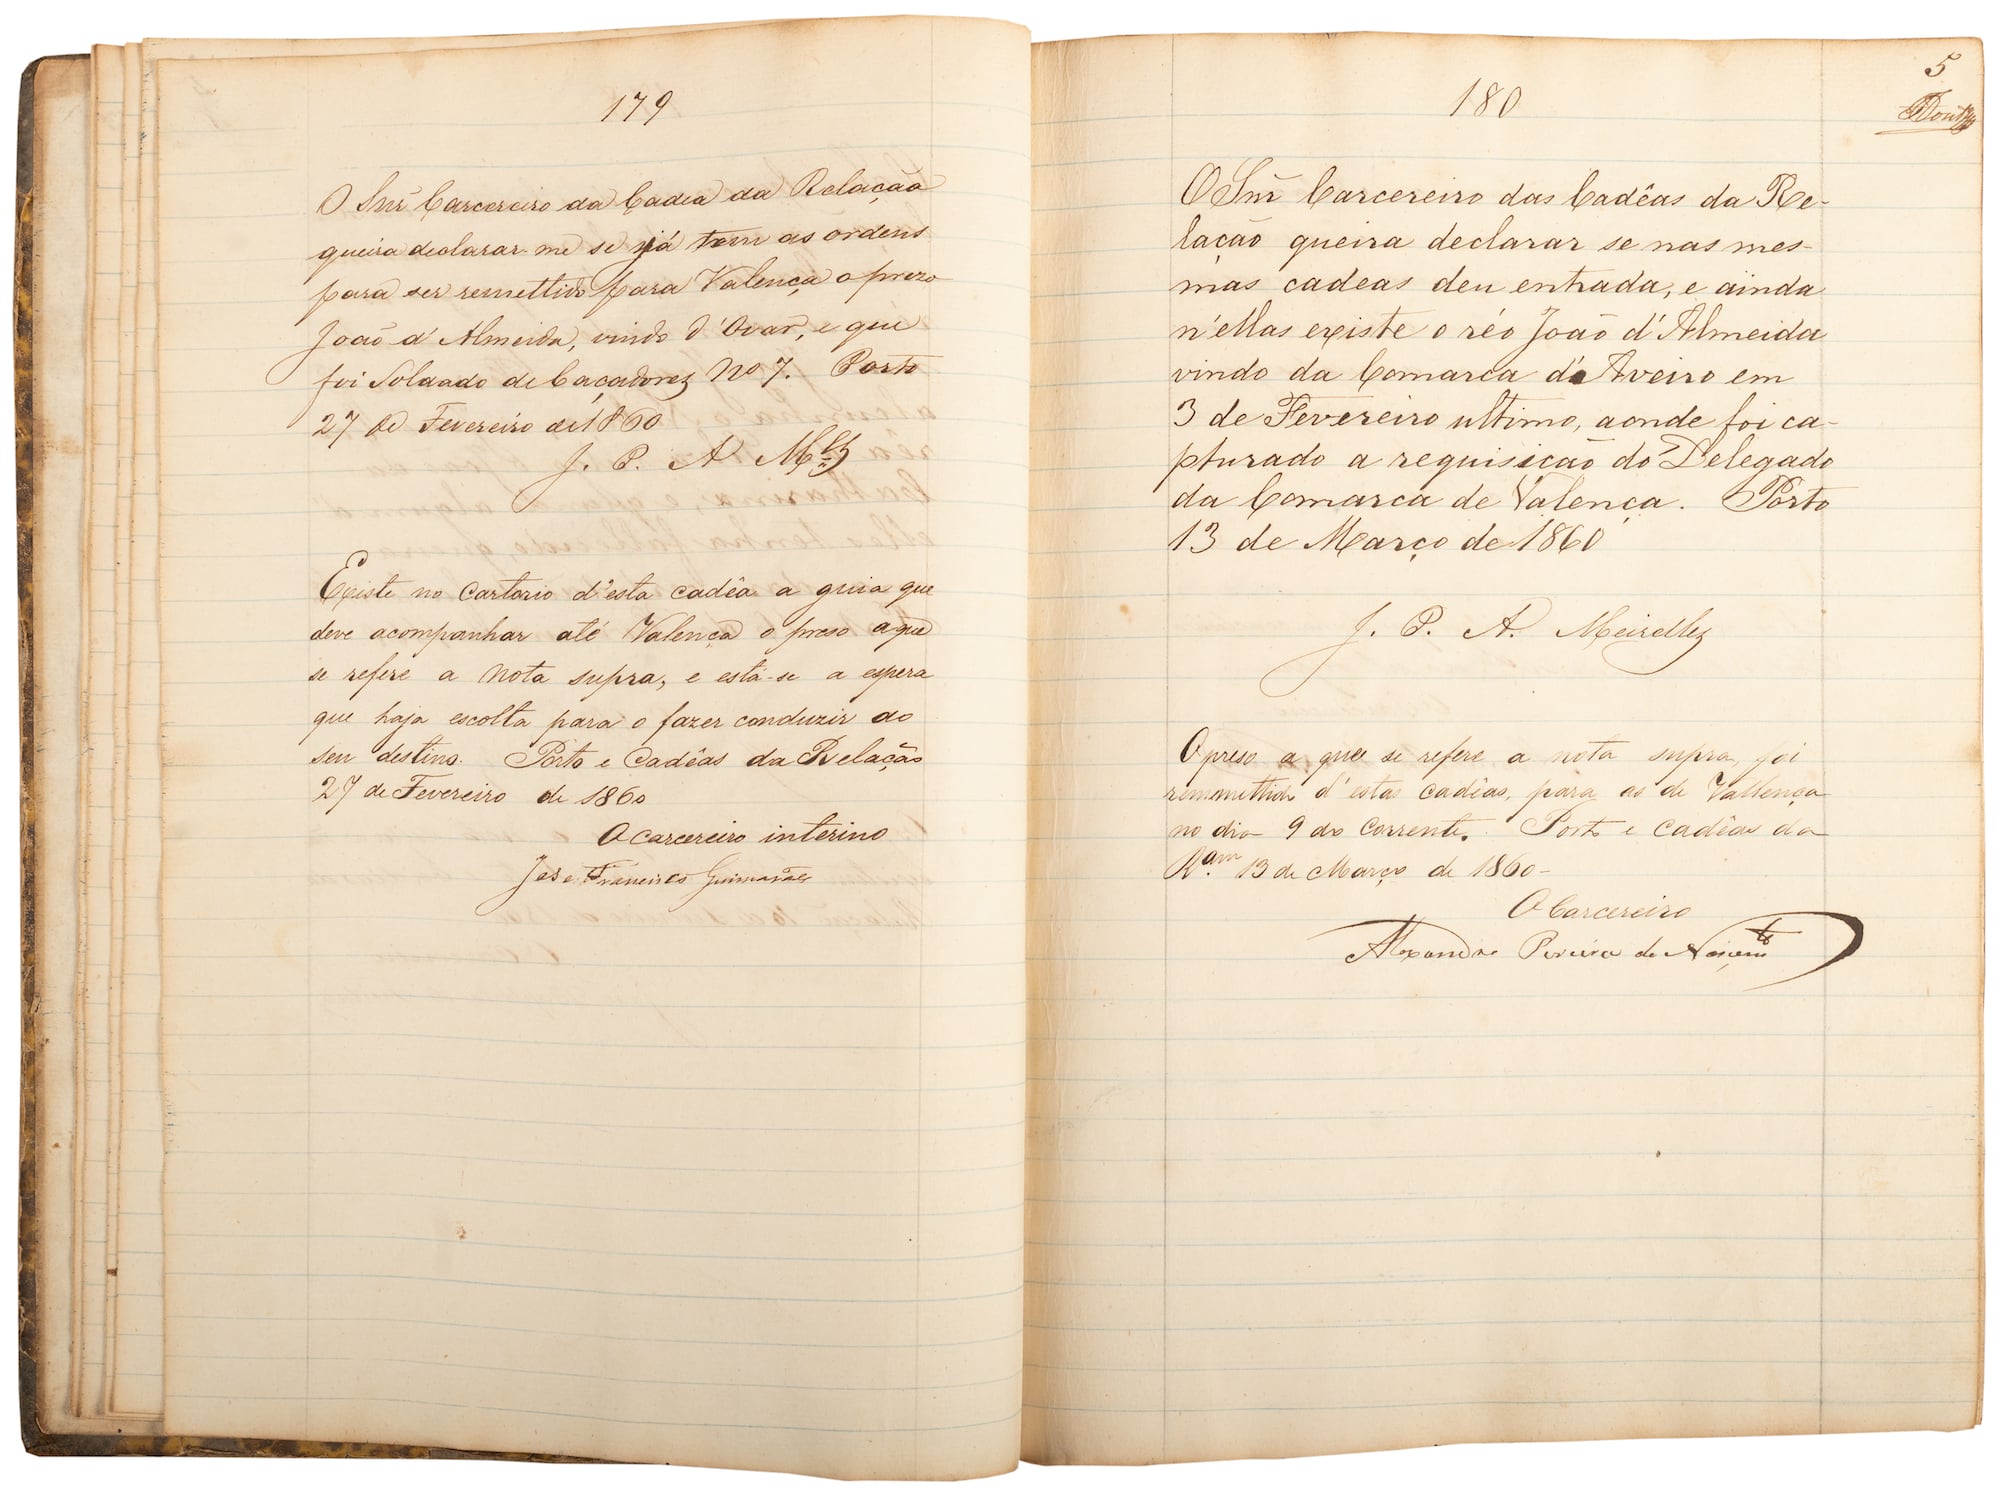 179
O Snr̃ Carcereiro da Cadea da Relação
queira declarar-me se já tem as ordens
para ser remettido para Valença o prezo
João d'Almeida, vindo d'Ovar, e que
foi Soldado de Caçadorez No 7. Porto
27 de Fevereiro de 1860
J. P. A Mllz
Existe no Cartorio d'esta cadêa a guia que
deve acompanhar até Valença o preso a que
se refere a nota supra, e está-se a espera
que haja escolta para o fazer conduzir ao
seu destino. Porto e Cadêas da Relação
27 de Fevereiro de 1860
O carcereiro interino
Jose Francisco Guimarães
5
180
O Snr̃ Carcereiro das Cadêas da Re-
lação queira declarar se nas mes-
mas cadeas deu entrada, e ainda
n'ellas existe o réo João d'Almeida
vindo da Comarca d'Aveiro em
3 de Fevereiro ultimo, aonde foi ca-
pturado a requisição do Delegado
da Comarca de Valença. Porto
13 de Março de 1860
J. P. A. Meirellez
O preso a que se refere a nota supra, foi
remmettido d'estas cadêas, para as de Vallença
no dia 9 do corrente. Porto e cadêas da
R.am 13 de Março de 1860-
O Carcereiro
Alexandre Pereira do Nascim.to